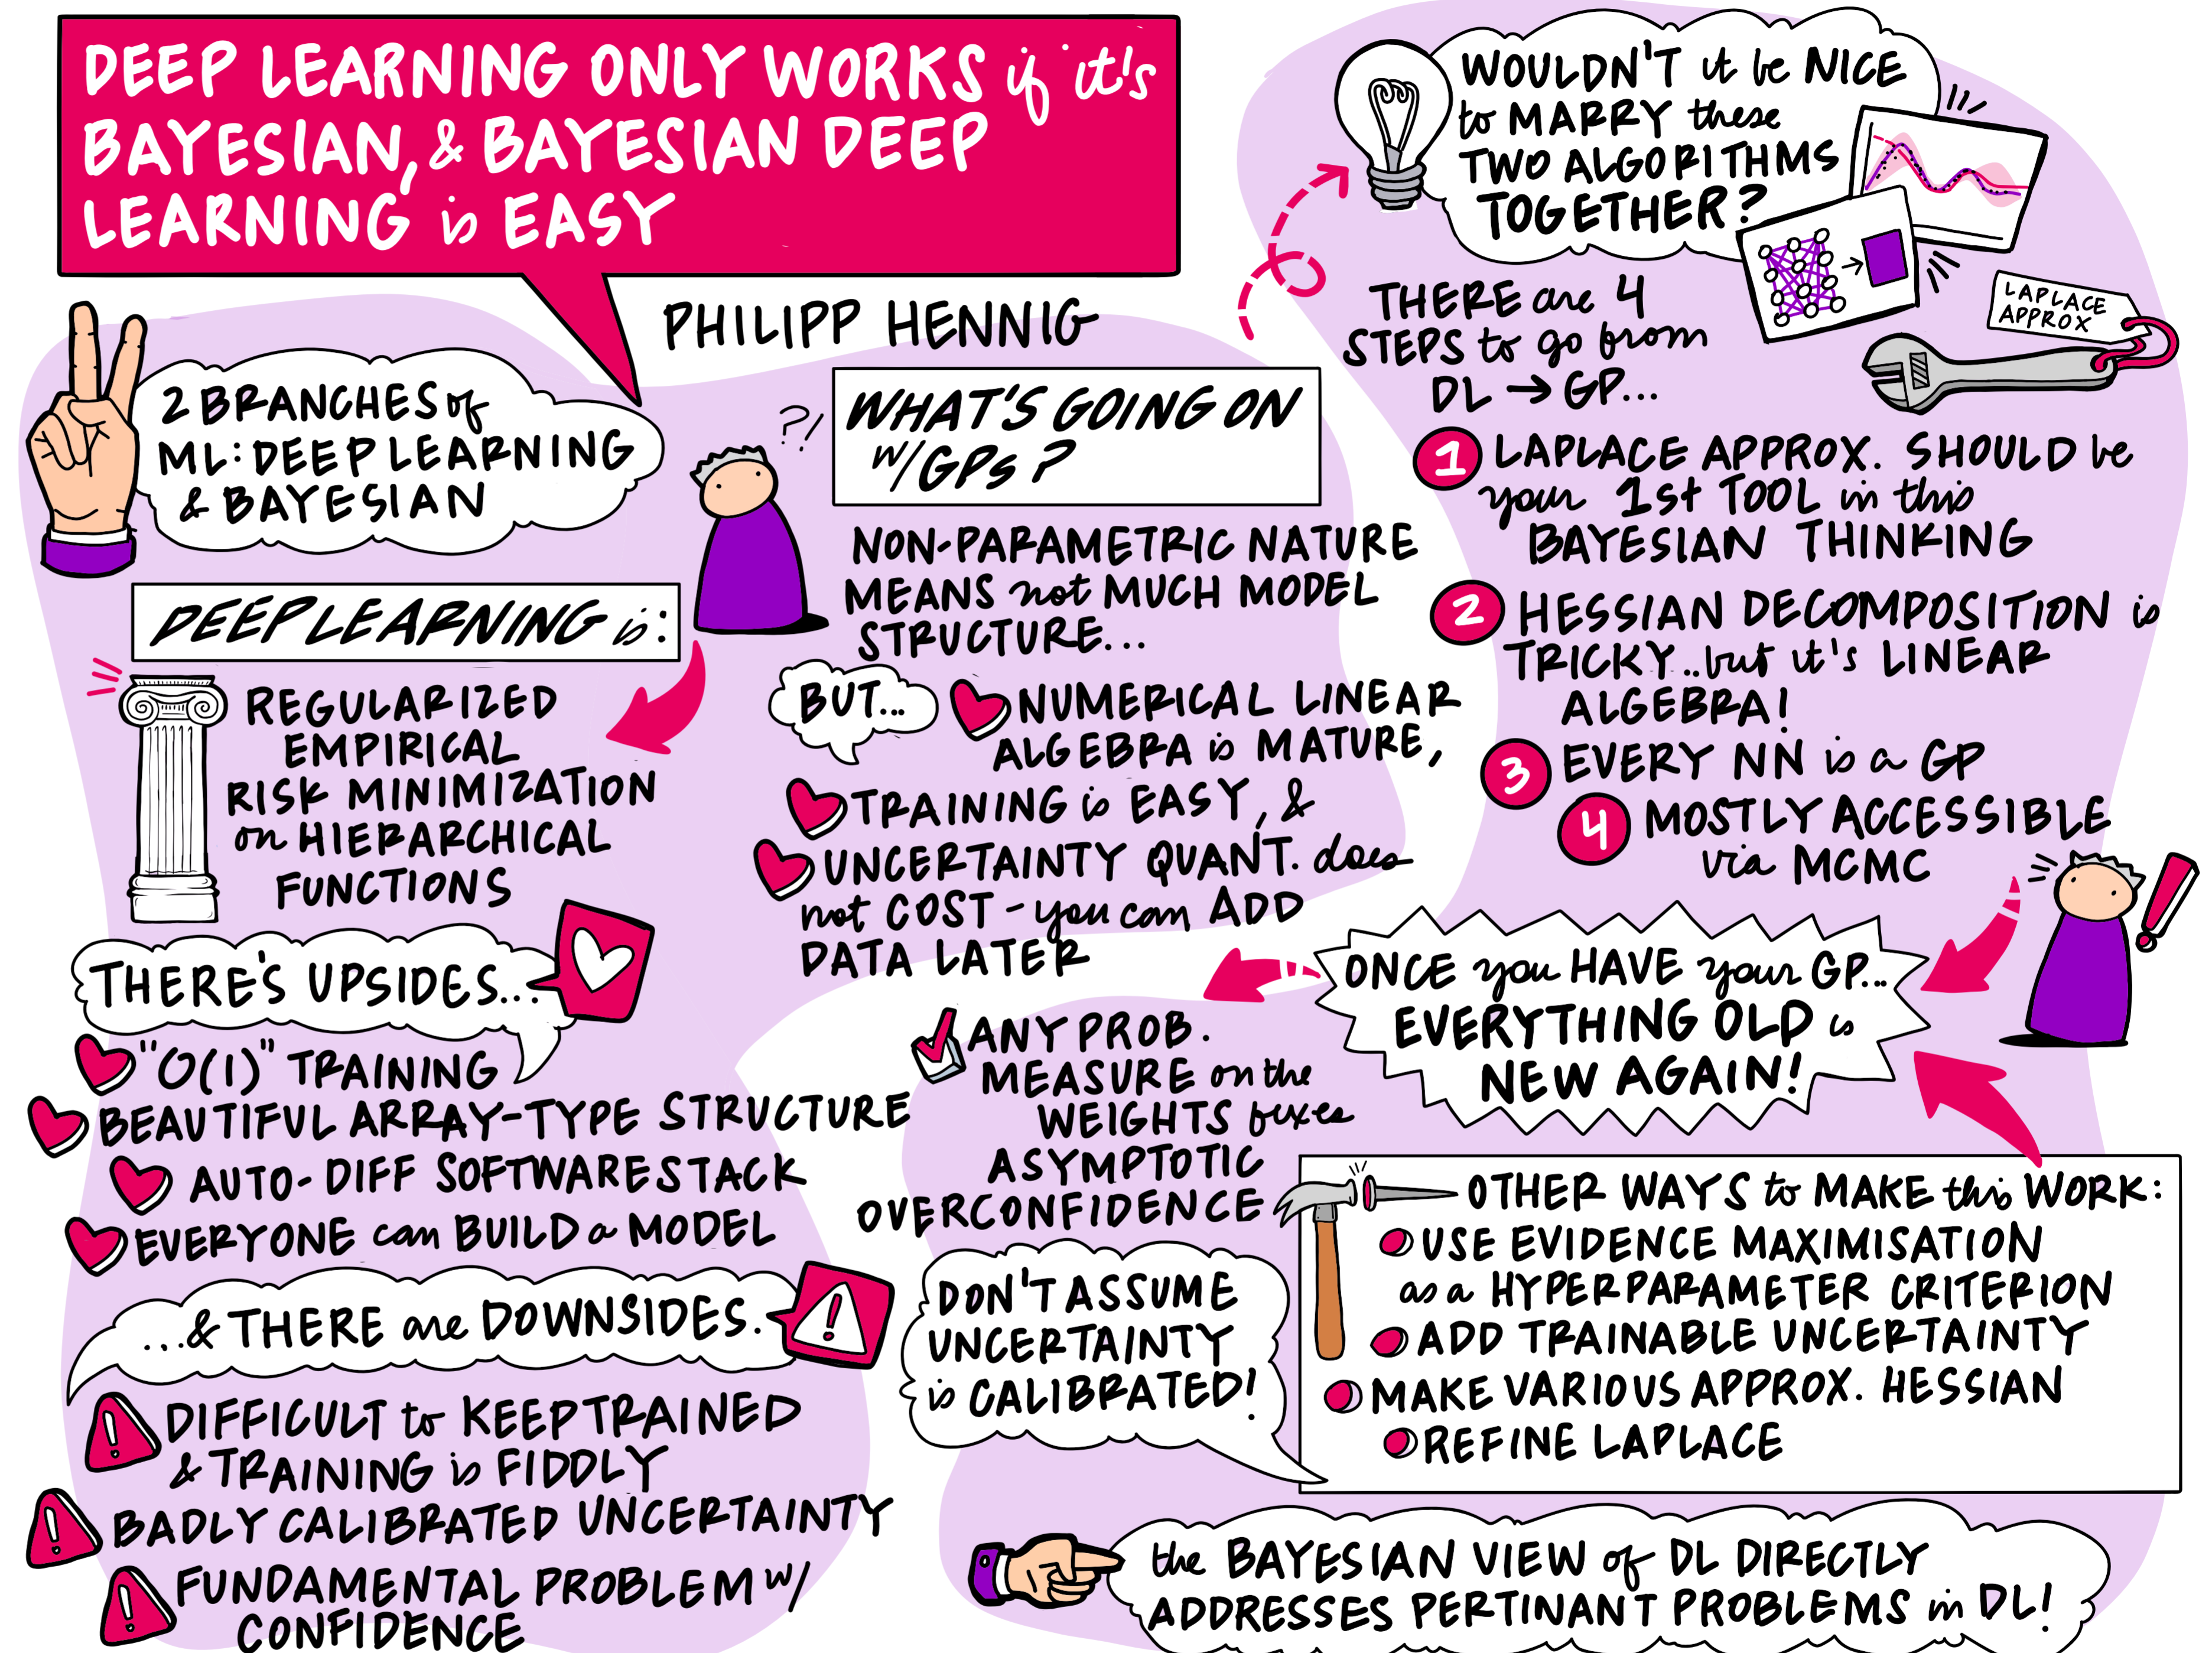 DEEP LEARNING ONLY WORKS if it's
BAYESIAN, & BAYESIAN DEEP
LEARNING is EASY
PHILIPP HENNIG
2 BRANCHES of
ML: DEEP LEARNING
& BAYESIAN
DEEP LEARNING is:
REGULARIZED
EMPIRICAL
RISK MINIMIZATION
on HIERARCHICAL
FUNCTIONS
THERE'S UPSIDES...
"O(1)" TRAINING
BEAUTIFUL ARRAY-TYPE STRUCTURE
AUTO-DIFF SOFTWARE STACK
EVERYONE can BUILD a MODEL
...& THERE are DOWNSIDES.
!
! DIFFICULT to KEEP TRAINED
& TRAINING is FIDDLY
! BADLY CALIBRATED UNCERTAINTY
! FUNDAMENTAL PROBLEM w/
CONFIDENCE
?!
WHAT'S GOING ON
w/ GPs?
NON-PARAMETRIC NATURE
MEANS not MUCH MODEL
STRUCTURE...
BUT...
NUMERICAL LINEAR
ALGEBRA is MATURE,
TRAINING is EASY, &
UNCERTAINTY QUANT. does
not COST - you can ADD
DATA LATER
WOULDN'T it be NICE
to MARRY these
TWO ALGORITHMS
TOGETHER?
LAPLACE
APPROX
THERE are 4
STEPS to go from
DL → GP...
1 LAPLACE APPROX. SHOULD be
your 1st TOOL in this
BAYESIAN THINKING
2 HESSIAN DECOMPOSITION is
TRICKY..but it's LINEAR
ALGEBRA!
3 EVERY NN is a GP
4 MOSTLY ACCESSIBLE
via MCMC
!
ONCE you HAVE your GP...
EVERYTHING OLD is
NEW AGAIN!
ANY PROB.
MEASURE on the
WEIGHTS fixes
ASYMPTOTIC
OVERCONFIDENCE
DON'T ASSUME
UNCERTAINTY
is CALIBRATED!
OTHER WAYS to MAKE this WORK:
USE EVIDENCE MAXIMISATION
as a HYPERPARAMETER CRITERION
ADD TRAINABLE UNCERTAINTY
MAKE VARIOUS APPROX. HESSIAN
REFINE LAPLACE
the BAYESIAN VIEW of DL DIRECTLY
ADDRESSES PERTINANT PROBLEMS in DL!